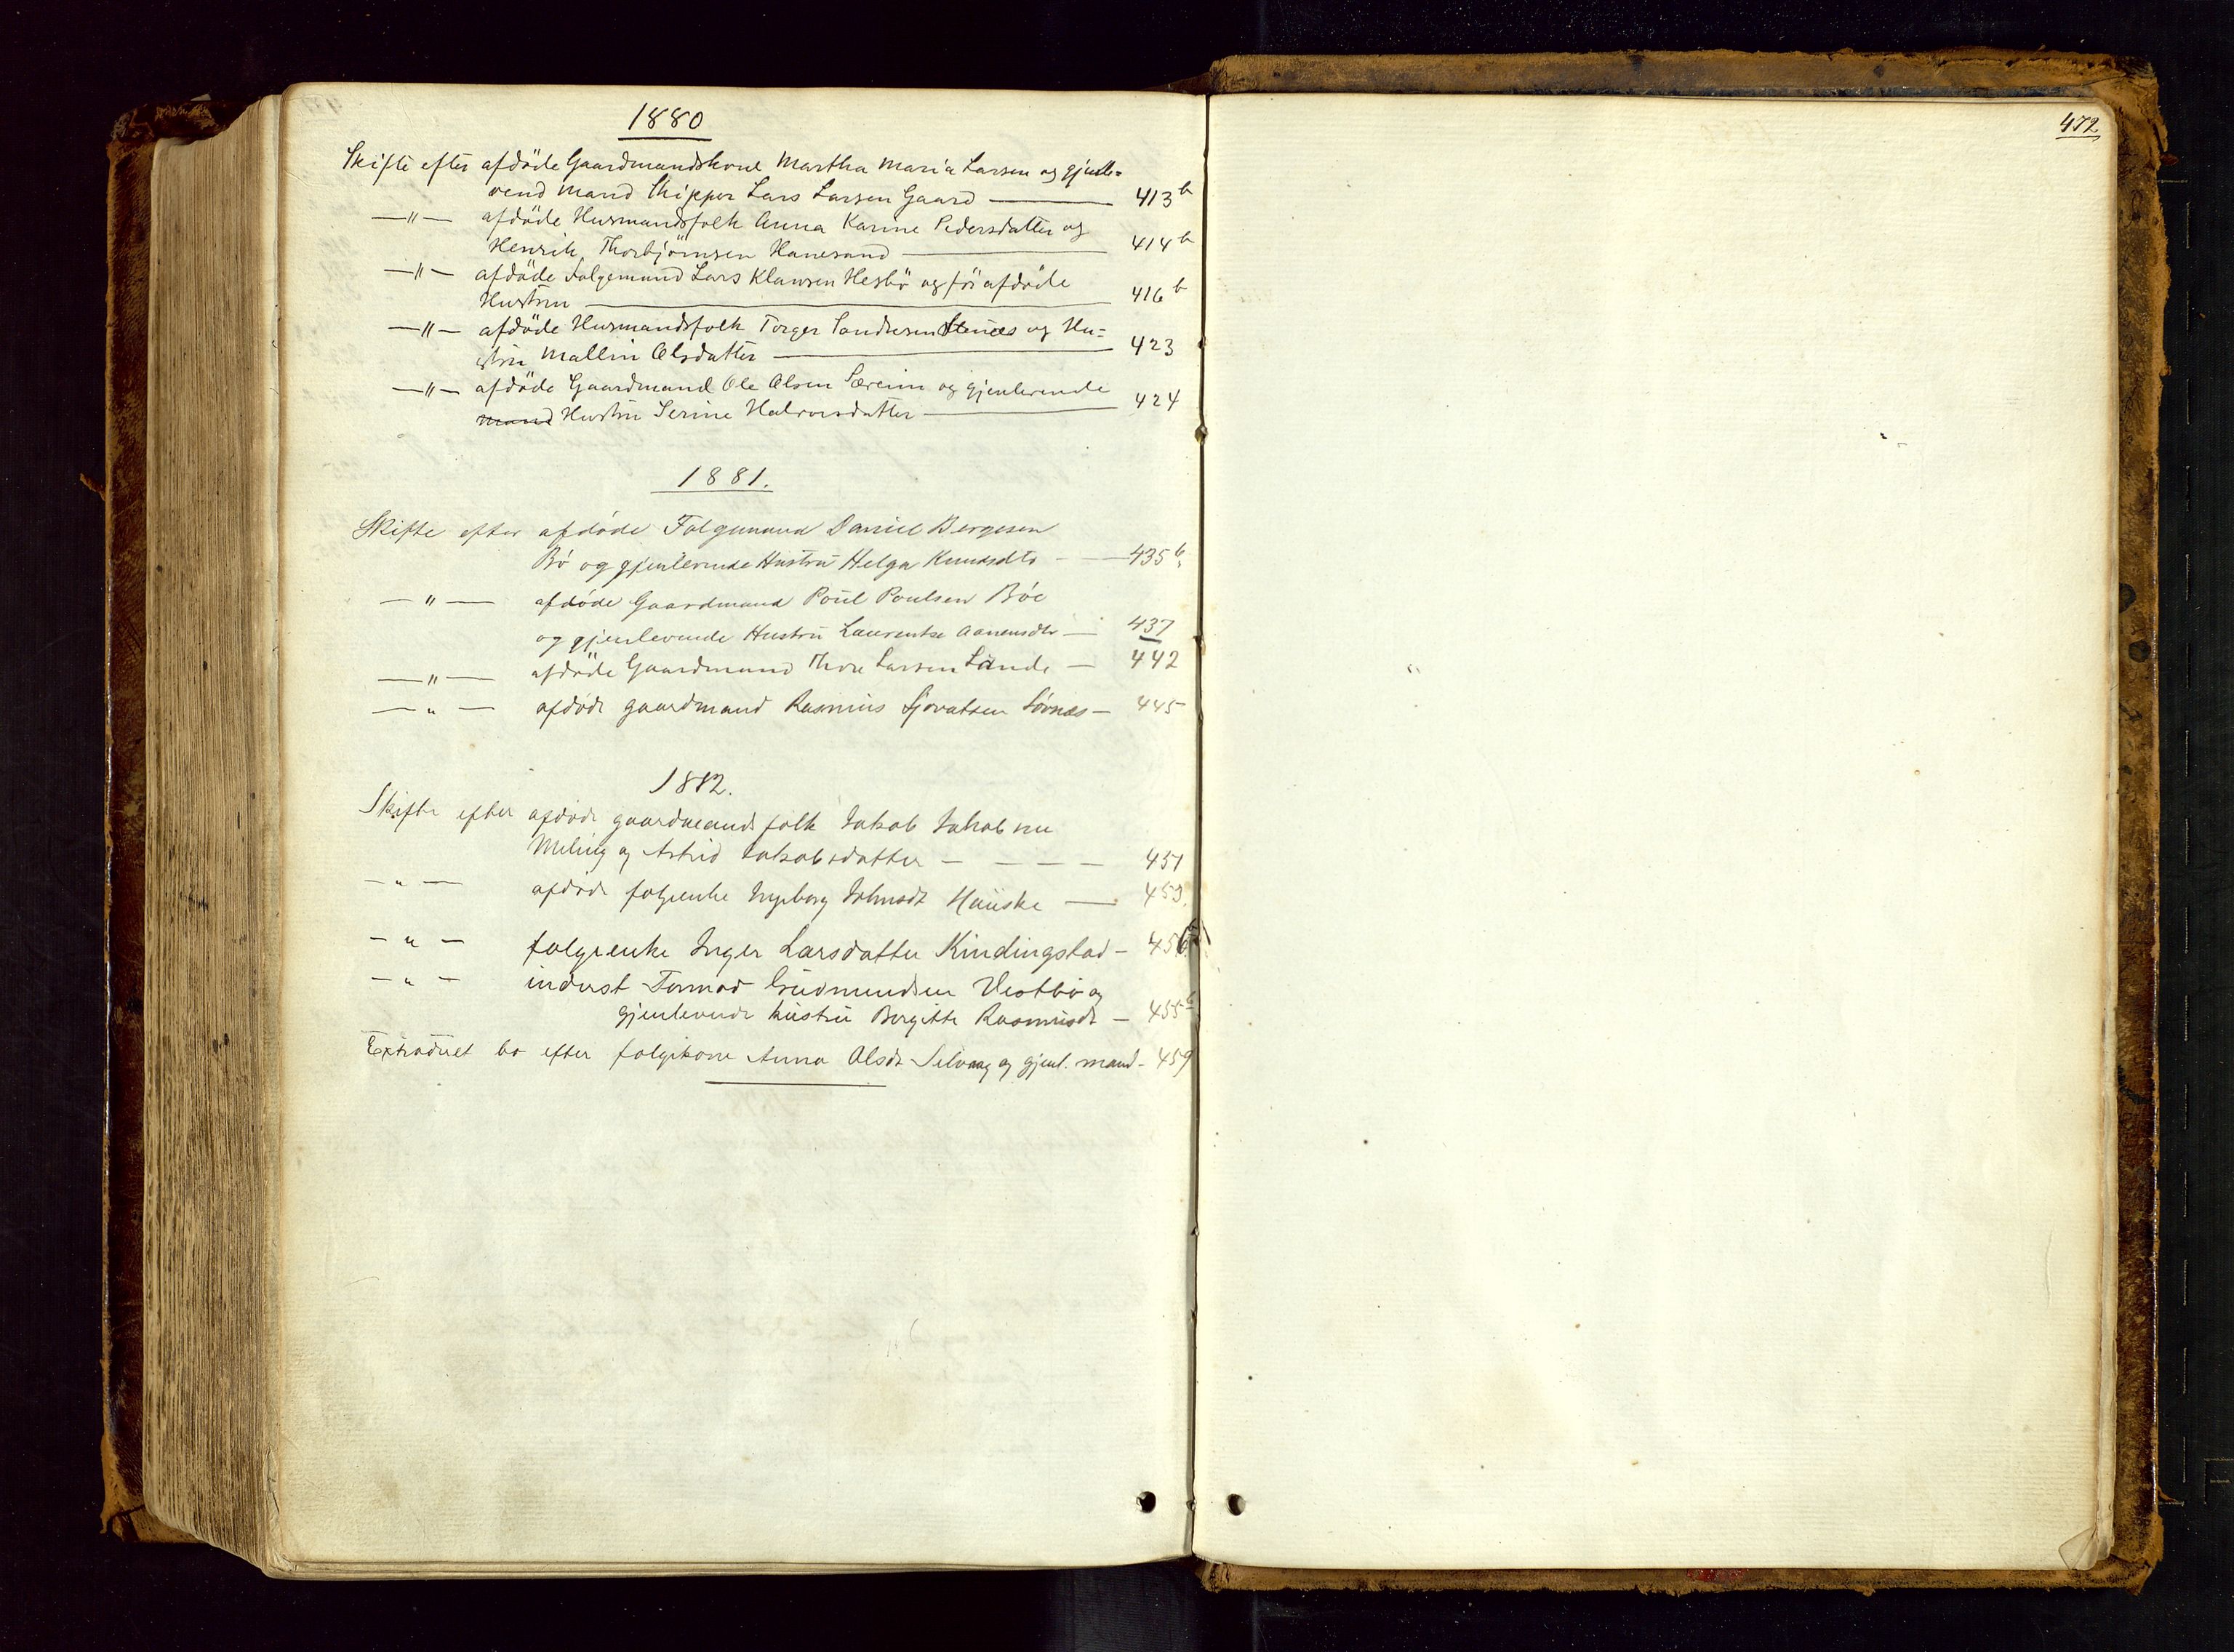 1880
Skifte efter afdöde Gaardmandskone Martha Maria Larsen og gjenle=
vend Mand Skipper Lars Larsen Gaard — 413 b
—"— afdöde Husmandsfolk Anna Karine Pedersdatter og
Henrik Thorbjörnsen Hanesand — 414 b
—"— afdöde Folgemand Lars Klausen Hesbö og för afdöde
Hustru — 416 b
—"— afdöde Husmandsfolk Torger og Hu=
stru Mallin Olsdatter — 423
—"— afdöde Gaardmand Ole Olsen Særeim og gjenlevende
Mand Hustru Serine Halvorsdatter — 424
1881.
Skifte efter afdöde Folgemand Daniel Bergesen
Bö og gjenlevende Hustru Helga Knudsdtr — 435 b.
—"— afdöde Gaardmand Poul Poulsen Böe
og gjenlevende Hustru Laurentse Aanensdtr — 437
—"— afdöde Gaardmand Thore Larsen Lande — 442
—"— afdöde gaardmand Rasmus Sjovatsen Sörnes — 445
1882.
Skifte efter afdöde gaardmandsfolk Jakob Jakobsen
Meling og Astrid Jakobsdatter — — — — 451
—"— afdöde folgeenke Ingeborg Johnsdt Hauske — 453.
—"— folgeenke Inger Larsdatter Kindingstad — 456
—"— inderst Tormod Gudmundsen Vestbö og
gjenlevende hustru Bergitte Rasmusdt — 455 b
Extraduet bo efter folgekone Anna Olsdt Selvaag og gjenl. mand — 459
472